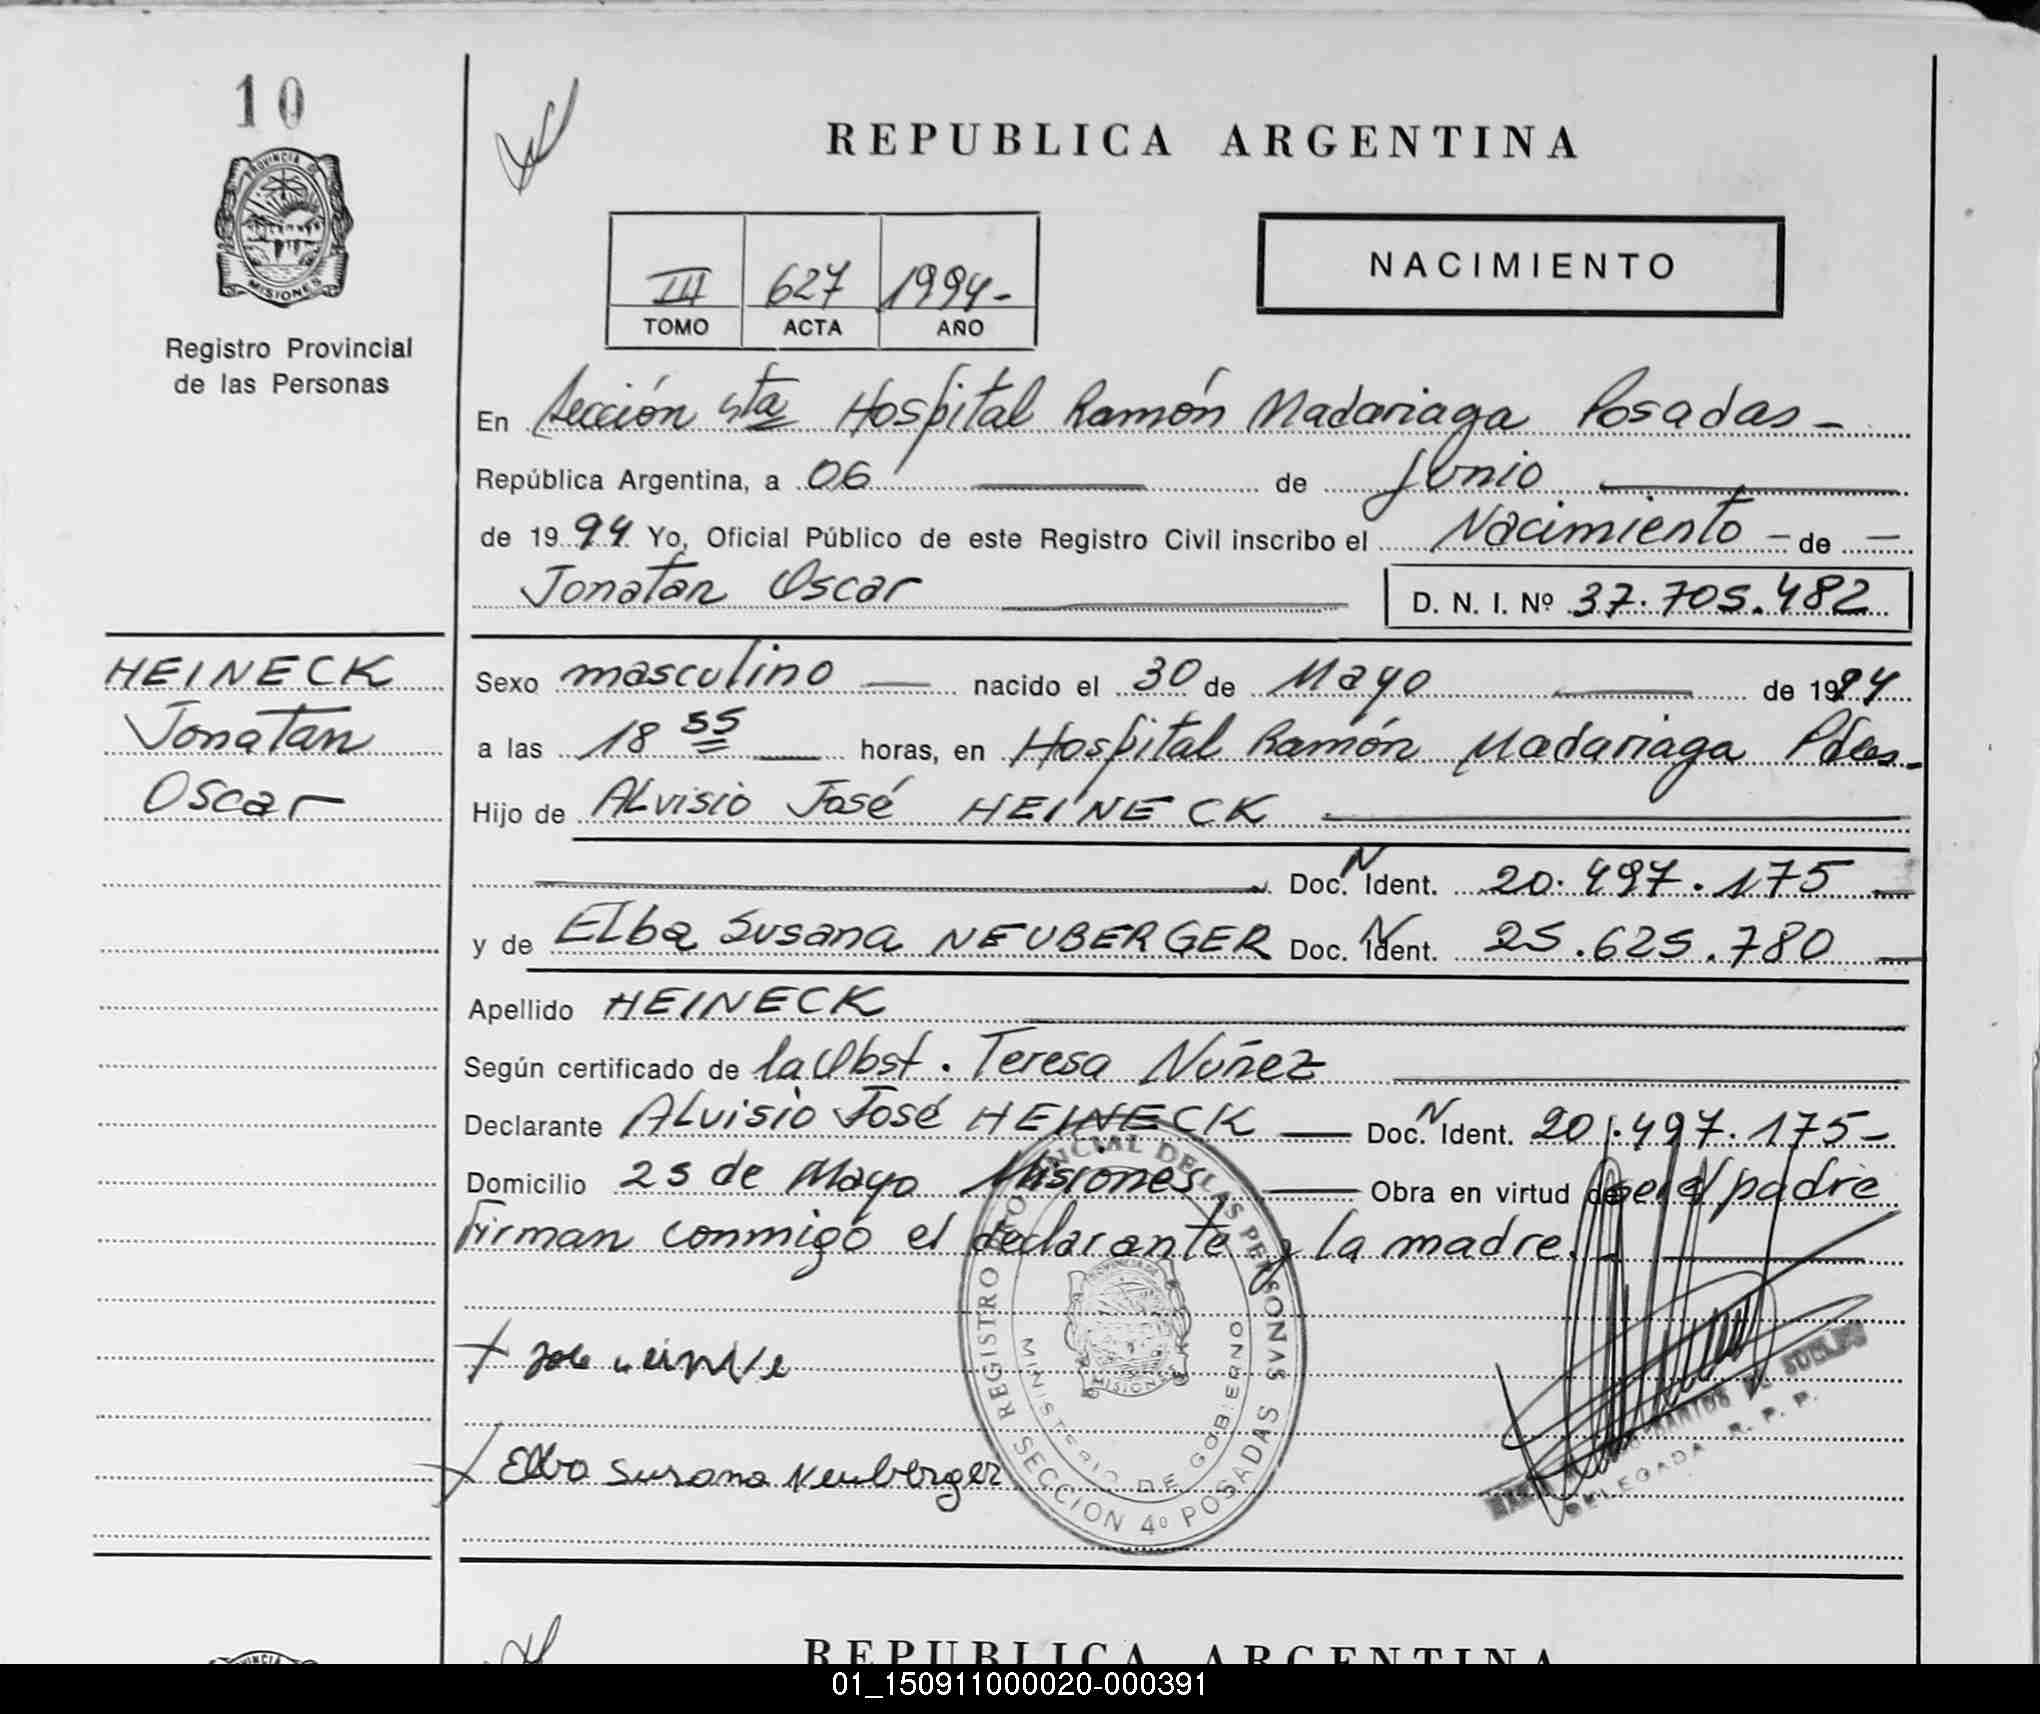 10
PROVINCIA DE
MISIONES
Registro Provincial
de las Personas
REPUBLICA ARGENTINA
III 627 1994-
TOMO ACTA AÑO
NACIMIENTO
En Sección 4ta Hospital Ramón Madariaga Posadas -
República Argentina, a 06 de Junio
de 1994 Yo, Oficial Público de este Registro Civil inscribo el Nacimiento - de -
Jonatan Oscar D. N. I. Nº 37.705.482
HEINECK
Jonatan
Oscar
Sexo masculino nacido el 30 de Mayo de 1994
a las 18 55 horas, en Hospital Ramón Madariaga Pdas-
Hijo de ALvisio José HEINECK
Doc. N Ident. 20.497.175
y de Elba Susana NEUBERGER Doc. N Ident. 25.625.780
Apellido HEINECK
Según certificado de la Obst. Teresa Nuñez
Declarante ALvisio José HEINECK Doc. N Ident. 20.497.175-
Domicilio 25 de Mayo Misiones Obra en virtud de ser el padre
Firman conmigo el declarante y la madre.
REGISTRO PROVINCIAL DE LAS PERSONAS
MINISTERIO DE GOBIERNO
MISIONES
SECCION 4º POSADAS
Elba Susana Neuberger
DELEGADA R. P. P.
REPUBLICA ARGENTINA
01_150911000020-000391